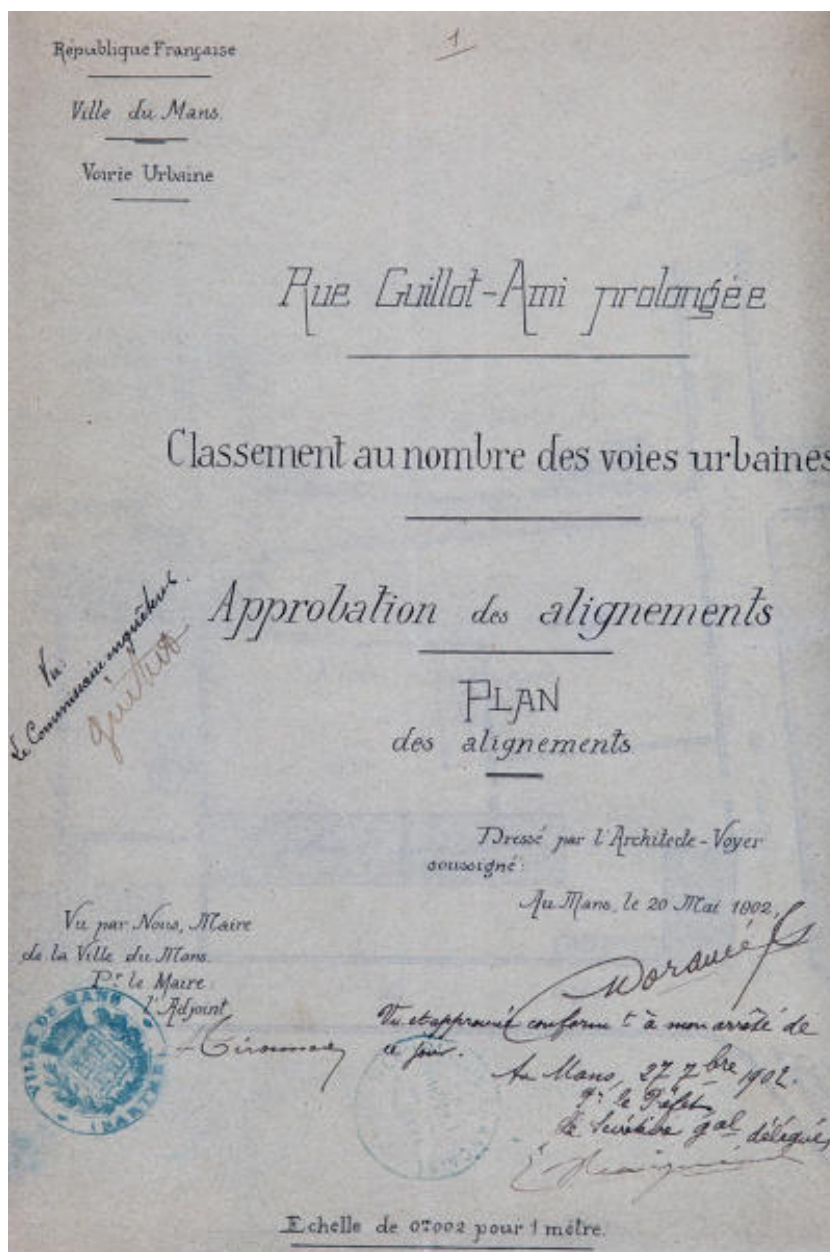 1
République Française
Ville du Mans.
Voirie Urbaine
Rue Guillot-Ami prolongée
Classement au nombre des voies urbaines
Approbation des alignements
PLAN
des alignements
Vu:
Le Commissaire enquêteur.
Dressé par l'Architecte-Voyer
soussigné:
Au Mans, le 20 Mai 1902,
Vu par Nous, Maire
de la Ville du Mans.
Pr le Maire:
l'Adjoint
VILLE DU MANS
(SARTHE)
Vu et approuvé conformt à mon arrêté de
ce jour.
Au Mans, 27 7bre 1902.
Pr le Préfet
Le Secrétaire gal délégué,
Echelle de 0m002 pour 1 mètre.